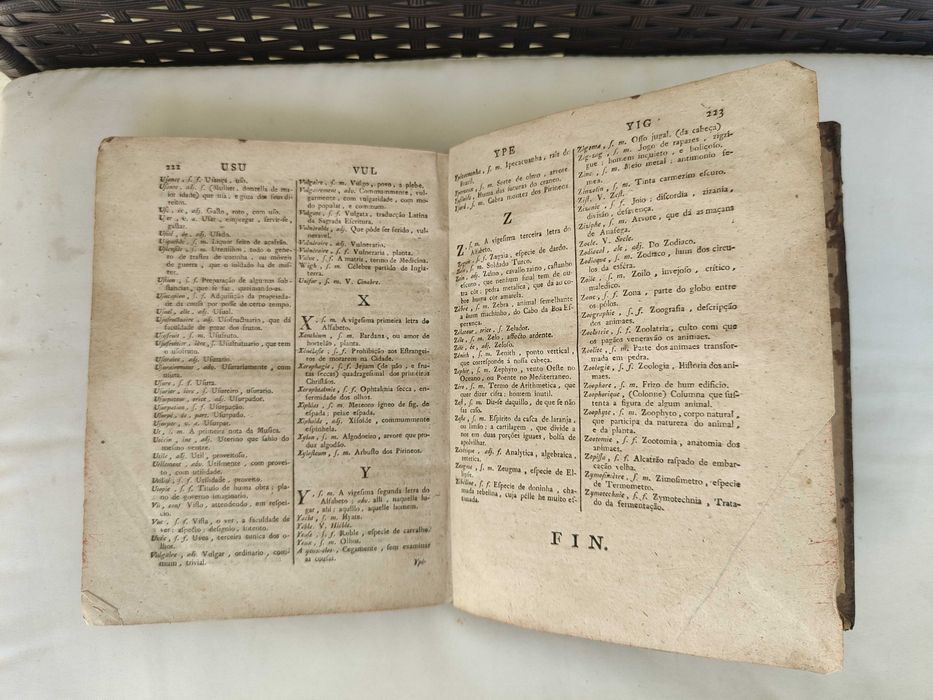 222 USU
VUL
Usance, s. f. Usança, uso.
Usante, adj. f. (Mulher, donzella de ma-
ior idade) que usa, e goza dos seus di-
reitos.
Usé, ée, adj. Gasto, roto, com uso.
User, v. a. Usar, empregar, servir-se,
gastar.
Usité, ée, adj. Usado.
s. m. Liquor feito de açafrão.
Ustensile, s. m. Utensilios, todo o gene-
ro de trastes de cozinha, ou móveis
de guerra, que o soldado ha de mis-
ter.
Ustion, s. f. Preparação de algumas sub-
stancias, que se faz queimando-as.
Usucapion, s. f. Adquisição da propriedade
de da cousa por posse de certo tempo.
Usuel, elle, adj. Usual.
Usufructuaire, adj. Usufructuario, que dá
faculdade de gozar dos frutos.
Usufruit, s. m. Usufruto.
Usufruitier, iére, s. Usufrutuario, que tem
o usofruto.
Usuraire, adj. Usurario.
Usurairement, adv. Usurariamente, com
usura.
Usure, s. f. Usura.
Usurier, iére, s. Usureiro, usurario.
Usurpateur, trice, adj. Usurpador.
Usurpation, s. f. Usurpação.
Usurpé, ée, part. Usurpado.
Usurper, v. a. Usurpar.
Ut, s. m. A primeira nota da Musica.
Utérin, ine, adj. Uterino que sahio do
mesmo ventre.
Utile, adj. Util, proveitoso.
Utilement, adv. Utilmente, com provei-
to, com utilidade.
Utilité, s. f. Utilidade, proveito.
Utopie, s. f. Titulo de huma obra; pla-
no de governo imaginario.
Vû, conj. Visto, attendendo, em respei-
to.
Vue, s. f. Vista, o ver, a faculdade de
ver: aspecto; designio, intento.
Uvée, s. f. Uvea, terceira tunica dos o-
lhos.
Vulgaire, adj. Vulgar, ordinario, com-
mum, trivial.
Vulgaire, s. m. Vulgo, povo, a plebe.
Vulgairement, adv. Commummente, vul-
garmente, com vulgaridade, com mo-
do popular, e commum.
Vulgate, s. f. Vulgata, traducção Latina
da Sagrada Escritura.
Vulnérable, adj. Que póde ser ferido, vul-
neravel.
Vulnéraire, adj. Vulnerario.
Vulnéraire, s. f. Vulneraria, planta.
Vulve, s. f. A matriz, termo de Medicina.
Wigh, s. m. Célebre partido de Ingla-
terra.
s. m. V. Cinabre.
X
X, s. m. A vigesima primeira letra do
Alfabeto.
Xanthium, s. m. Bardana, ou amor de
hortelão, planta.
Xénélasie, s. f. Prohibição aos Estrangei-
ros de morarem na Cidade.
Xerophagie, s. f. Jejum (de pão, e fru-
tas seccas) quadragesimal dos primeiros
Christãos.
Xerophtalmie, s. f. Ophtalmia secca, en-
fermidade dos olhos.
Xiphias, s. m. Meteoro igneo de fig. de
espada; peixe espada.
Xiphoide, adj. Xifoide, commummente
espinhela.
Xylon, s. m. Algodoeiro, arvore que pro-
duz algodão.
Xylosteum, s. m. Arbusto dos Pirineos.
Y
Y, s. m. A vigesima segunda letra do
Alfabeto; adv. alli, naquella lu-
gar, ahi; aquillo, aquelle homem.
Yacht, s. m. Hyate.
Yeble. V. Hiéble.
Yeuse, s. f. Roble, especie de carvalho.
Yeux, s. m. Olhos.
A yeux-clos, Cegamente, sem examinar
as cousas.
Ype-
YPE
YIG 223
s. m. Ipecacuanha, raiz do
Brasil.
s. m. Sorte de olmo, arvore.
s. f. Huma das suturas do craneo.
Ysard, s. m. Cabra montez dos Pirineos.
Z
Z, s. m. A vigesima terceira letra do
Alfabeto.
Zagaie, s. f. Zagaia, especie de dardo.
s. m. Soldado Turco.
Zain, adj. Zaino, cavallo zaino, castanho
escuro, que nenhum final tem de ou-
tra côr: pedra metalica, que dá ao co-
bre huma côr amarela.
Zébre, s. m. Zebra, animal semelhante
a hum machinho, do Cabo da Boa Es-
perança.
Zélateur, trice, s. Zelador.
Zéle, s. m. Zelo, affecto ardente.
Zélé, ée, adj. Zeloso.
Zénith, s. m. Zenith, ponto vertical,
que corresponde á nossa cabeça.
Zephir, s. m. Zephyro, vento Oeste no
Oceano, ou Poente no Mediterraneo.
Zero, s. m. Termo de Aritmetica, que
quer dizer cifra: homem inutil.
Zest, s. m. Diz-se daquillo, de que se não
faz caso.
Zeste, s. m. Espirito da casca de laranja
ou limão; a cartilagem, que divide a
noz em duas porções iguaes, bolsa de
apolvilhar.
Zététique, adj. f. Analytica, algebraica,
metetica.
Zeugme, s. m. Zeugma, especie de El-
lipse.
Zibéline, s. f. Especie de doninha, cha-
mada zebelina, cuja pélle he muito es-
timada.
Zigoma, s. m. Osso jugal. (da cabeça)
Zig-zag, s. m. Jogo de rapazes zigzi-
gue; homem inquieto, e boliçoso.
Zinc, s. m. Meio metal; antimonio fe-
mea.
Zinzolin, s. m. Tinta carmezim escuro.
Zist, V. Zest.
Zizanie, s. f. Joio; discordia, zizania,
divisão, desavença.
Zisiphe, s. m. Arvore, que dá as maçans
de Anafega.
Zocle. V. Socle.
Zodiacal, ale, adj. Do Zodiaco.
Zodiaque, s. m. Zodiaco, hum dos circu-
los da esféra.
Zoile, s. m. Zoilo, invejoso, crítico,
maledico.
Zone, s. f. Zona, parte do globo entre
os pólos.
Zoographie, s. f. Zoografia, descripção
dos animaes.
Zoolatrie, s. f. Zoolatria, culto com que
os pagãos veneravão os animaes.
Zoolite, s. m. Parte dos animaes transfor-
mada em pedra.
Zoologie, s. f. Zoologia, Historia dos ani-
maes.
Zoophore, s. m. Frizo de hum edificio.
Zoophorique, (Colonne) Columna que sus-
tenta a figura de algum animal.
Zoophyte, s. m. Zoophyto, corpo natural,
que participa da natureza do animal,
e da planta.
Zootomie, s. f. Zootomia, anatomia dos
animaes.
Zopissa, s. f. Alcatrão raspado de embar-
cação velha.
Zymosimétre, s. m. Zimosimetro, especie
de Termometro.
Zymotechnie, s. f. Zymotechnia, Trata-
do da fermentação.
FIN.